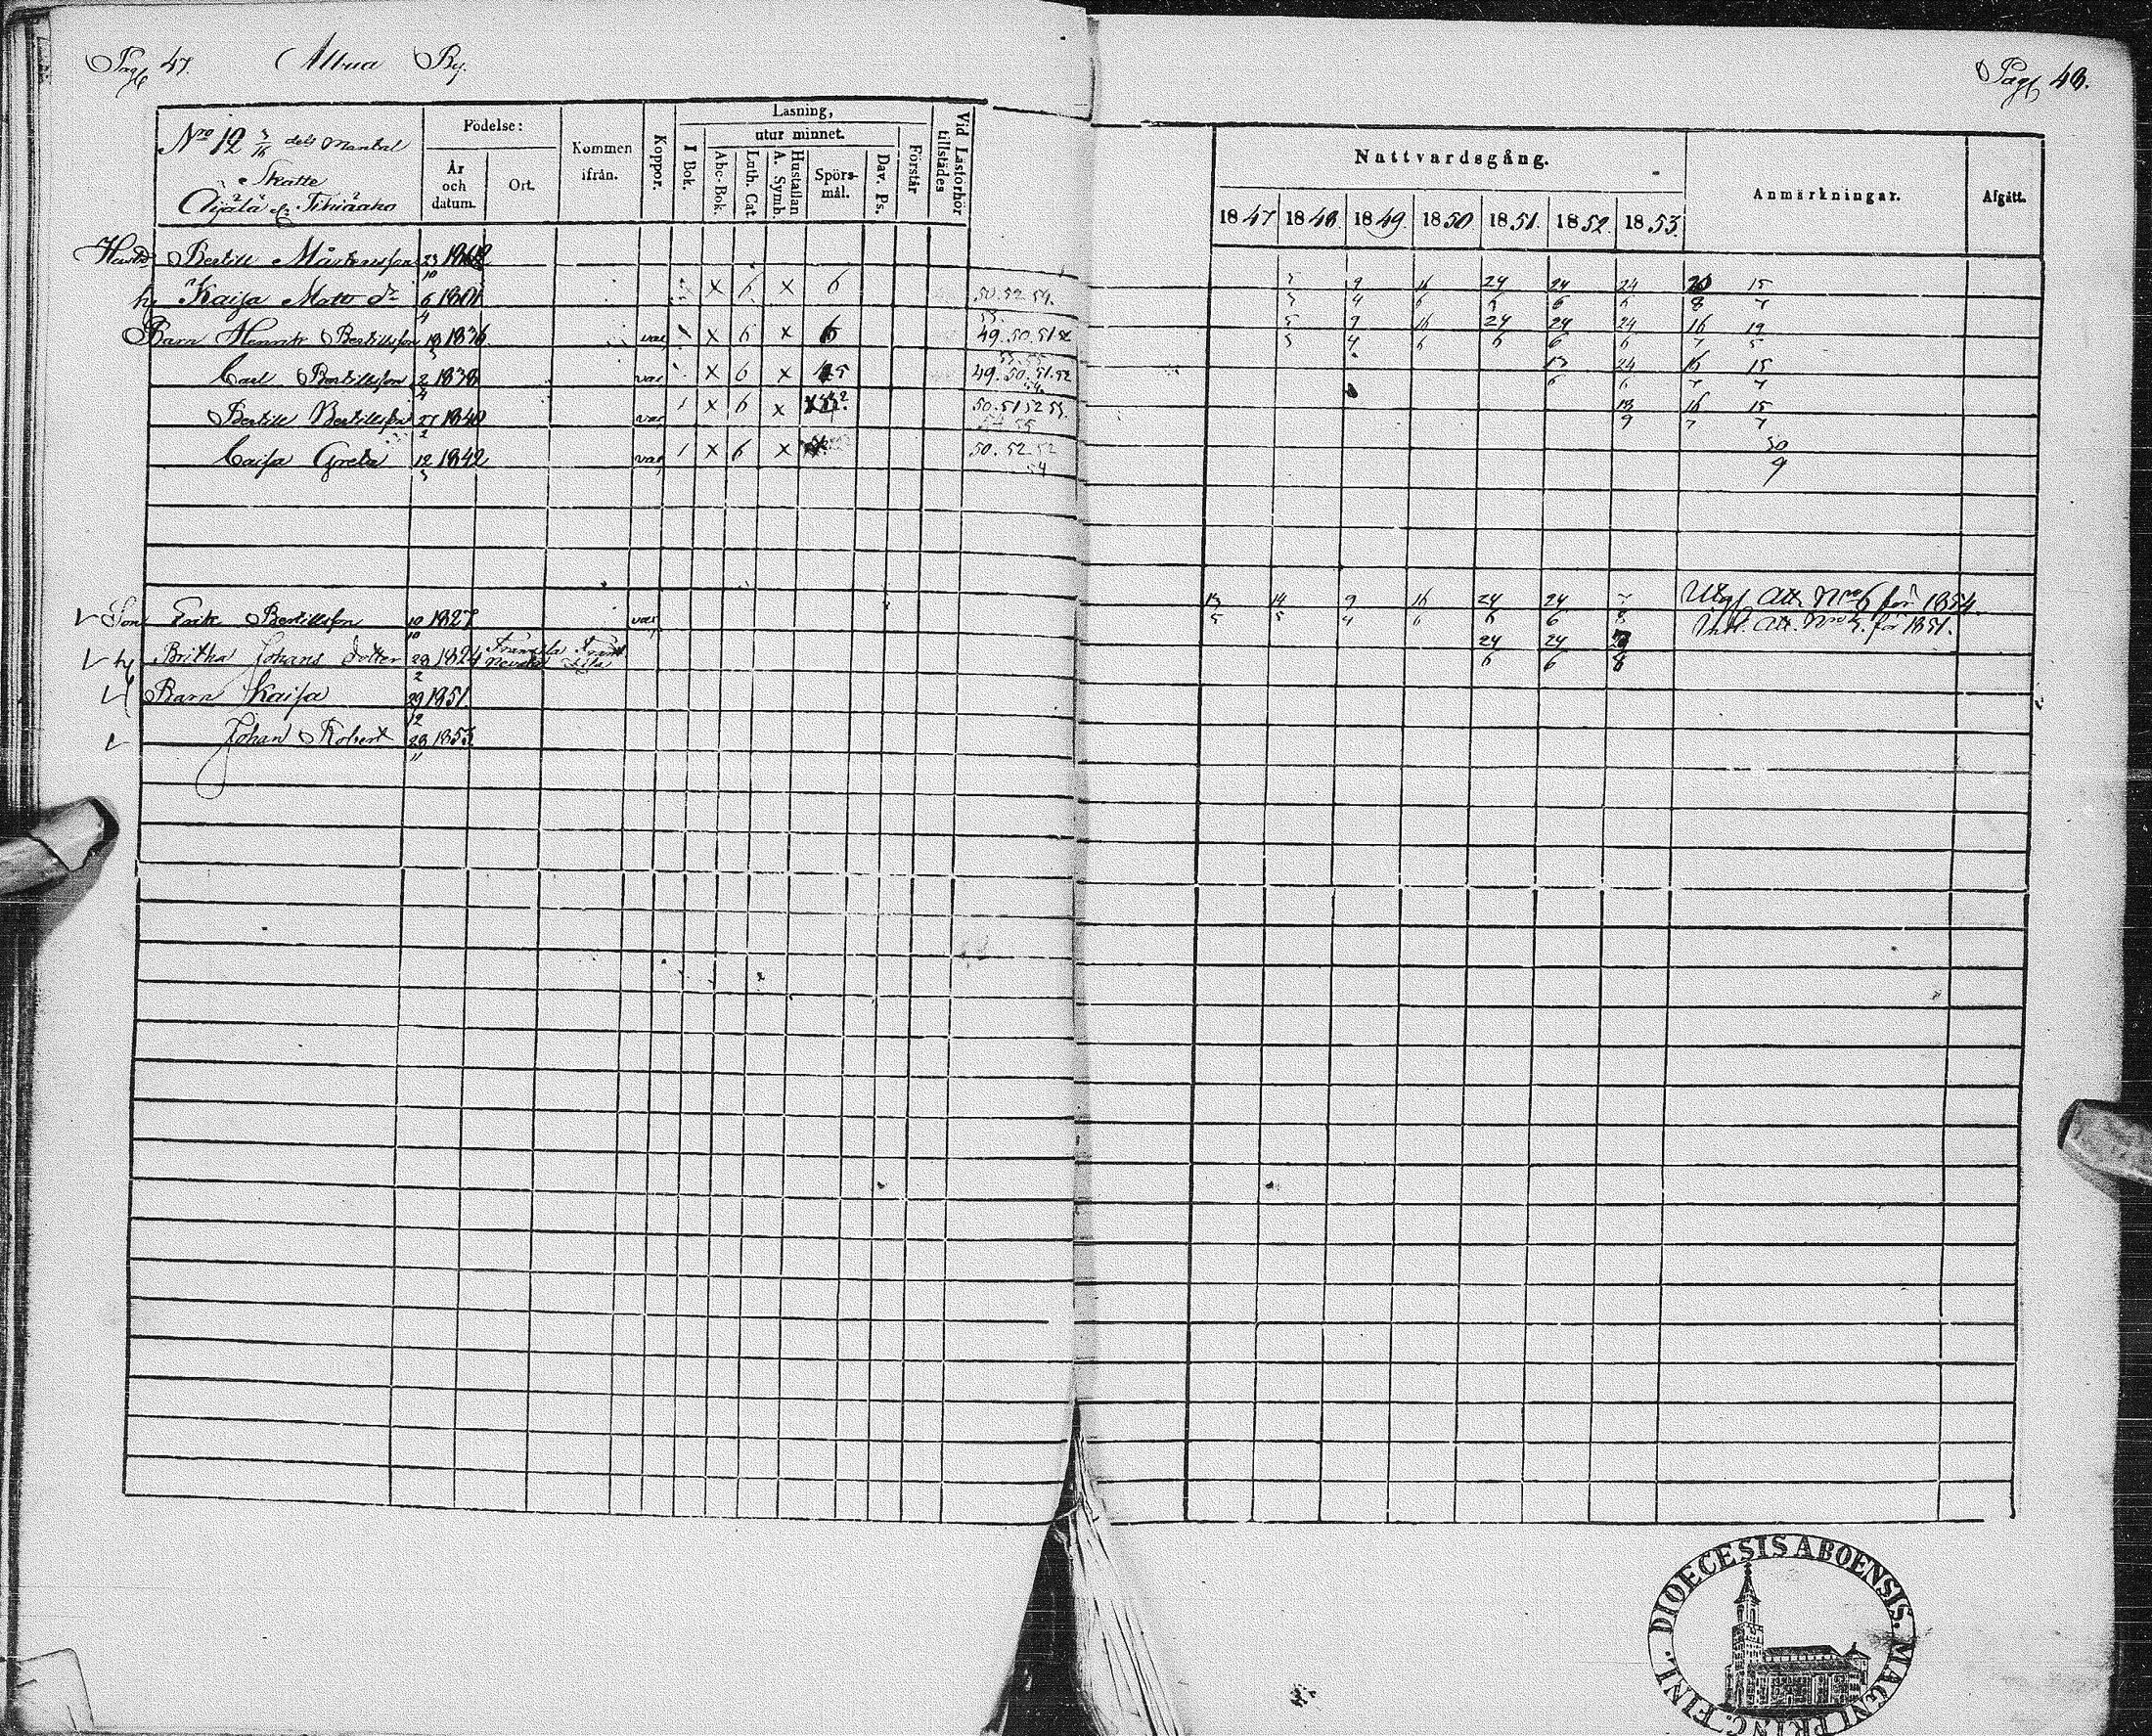 Pag 47. Albua By.
Pag 48.
Nro 12 3/16 dels Mantal
Skatte
Äijälä
Födelse:
År och datum.
Ort.
Kommen ifrån.
Koppor.
Läsning,
I Bok.
utur minnet.
Abc-Bok.
Luth. Cat.
Hustaflan A. Symb.
Spörsmål.
Dav. Ps.
Förstår
Vid Läsförhör tillstädes
Nattvardsgång.
1847 1848. 1849. 1850 1851. 1852. 1853.
Anmärkningar.
Afgått.
Bertill Mårtensson 23/10
h. Kaisa Matts dr 6/4 1801 x 6 x 6 50. 52. 54.
3/5 9/4 16/6 24/6 24/6 24/6 20/8 15/7
Barn Henrik Bertillsson 1836 vac x 6 x 6 49. 50. 51. 52
5/5 9/4 16/6 24/6 24/6 24/6 16/7 19/5
Carl Bertillsson 2/4 1838 vac x 6 x 5 49. 50. 51. 52 54.
13/6 24/6 16/7 15/7
Bertill Bertillsson 27/2 1840 vac 1 x 6 x 50. 51 52 53. 54 55
18/9 16/7 15/7
Caisa Greta 12/3 1842 vac 1 x 6 x 50. 52. 52 54
30/9
Son Erik Bertillsson 10/10 1827 vac
13/5 14/5 9/4 16/6 24/6 24/6 7/8 Utgf Att. Nro 6 för 1854.
h. Britha Johans dotter 28/2 1824
24/6 24/6 Inkl. Att. Nro 5. för 1851.
Barn Kaisa 29/12 1851.
Johan Robert 28/11 1853
DIOECESIS ABOENSIS. MAGNI PRINC. FINL.